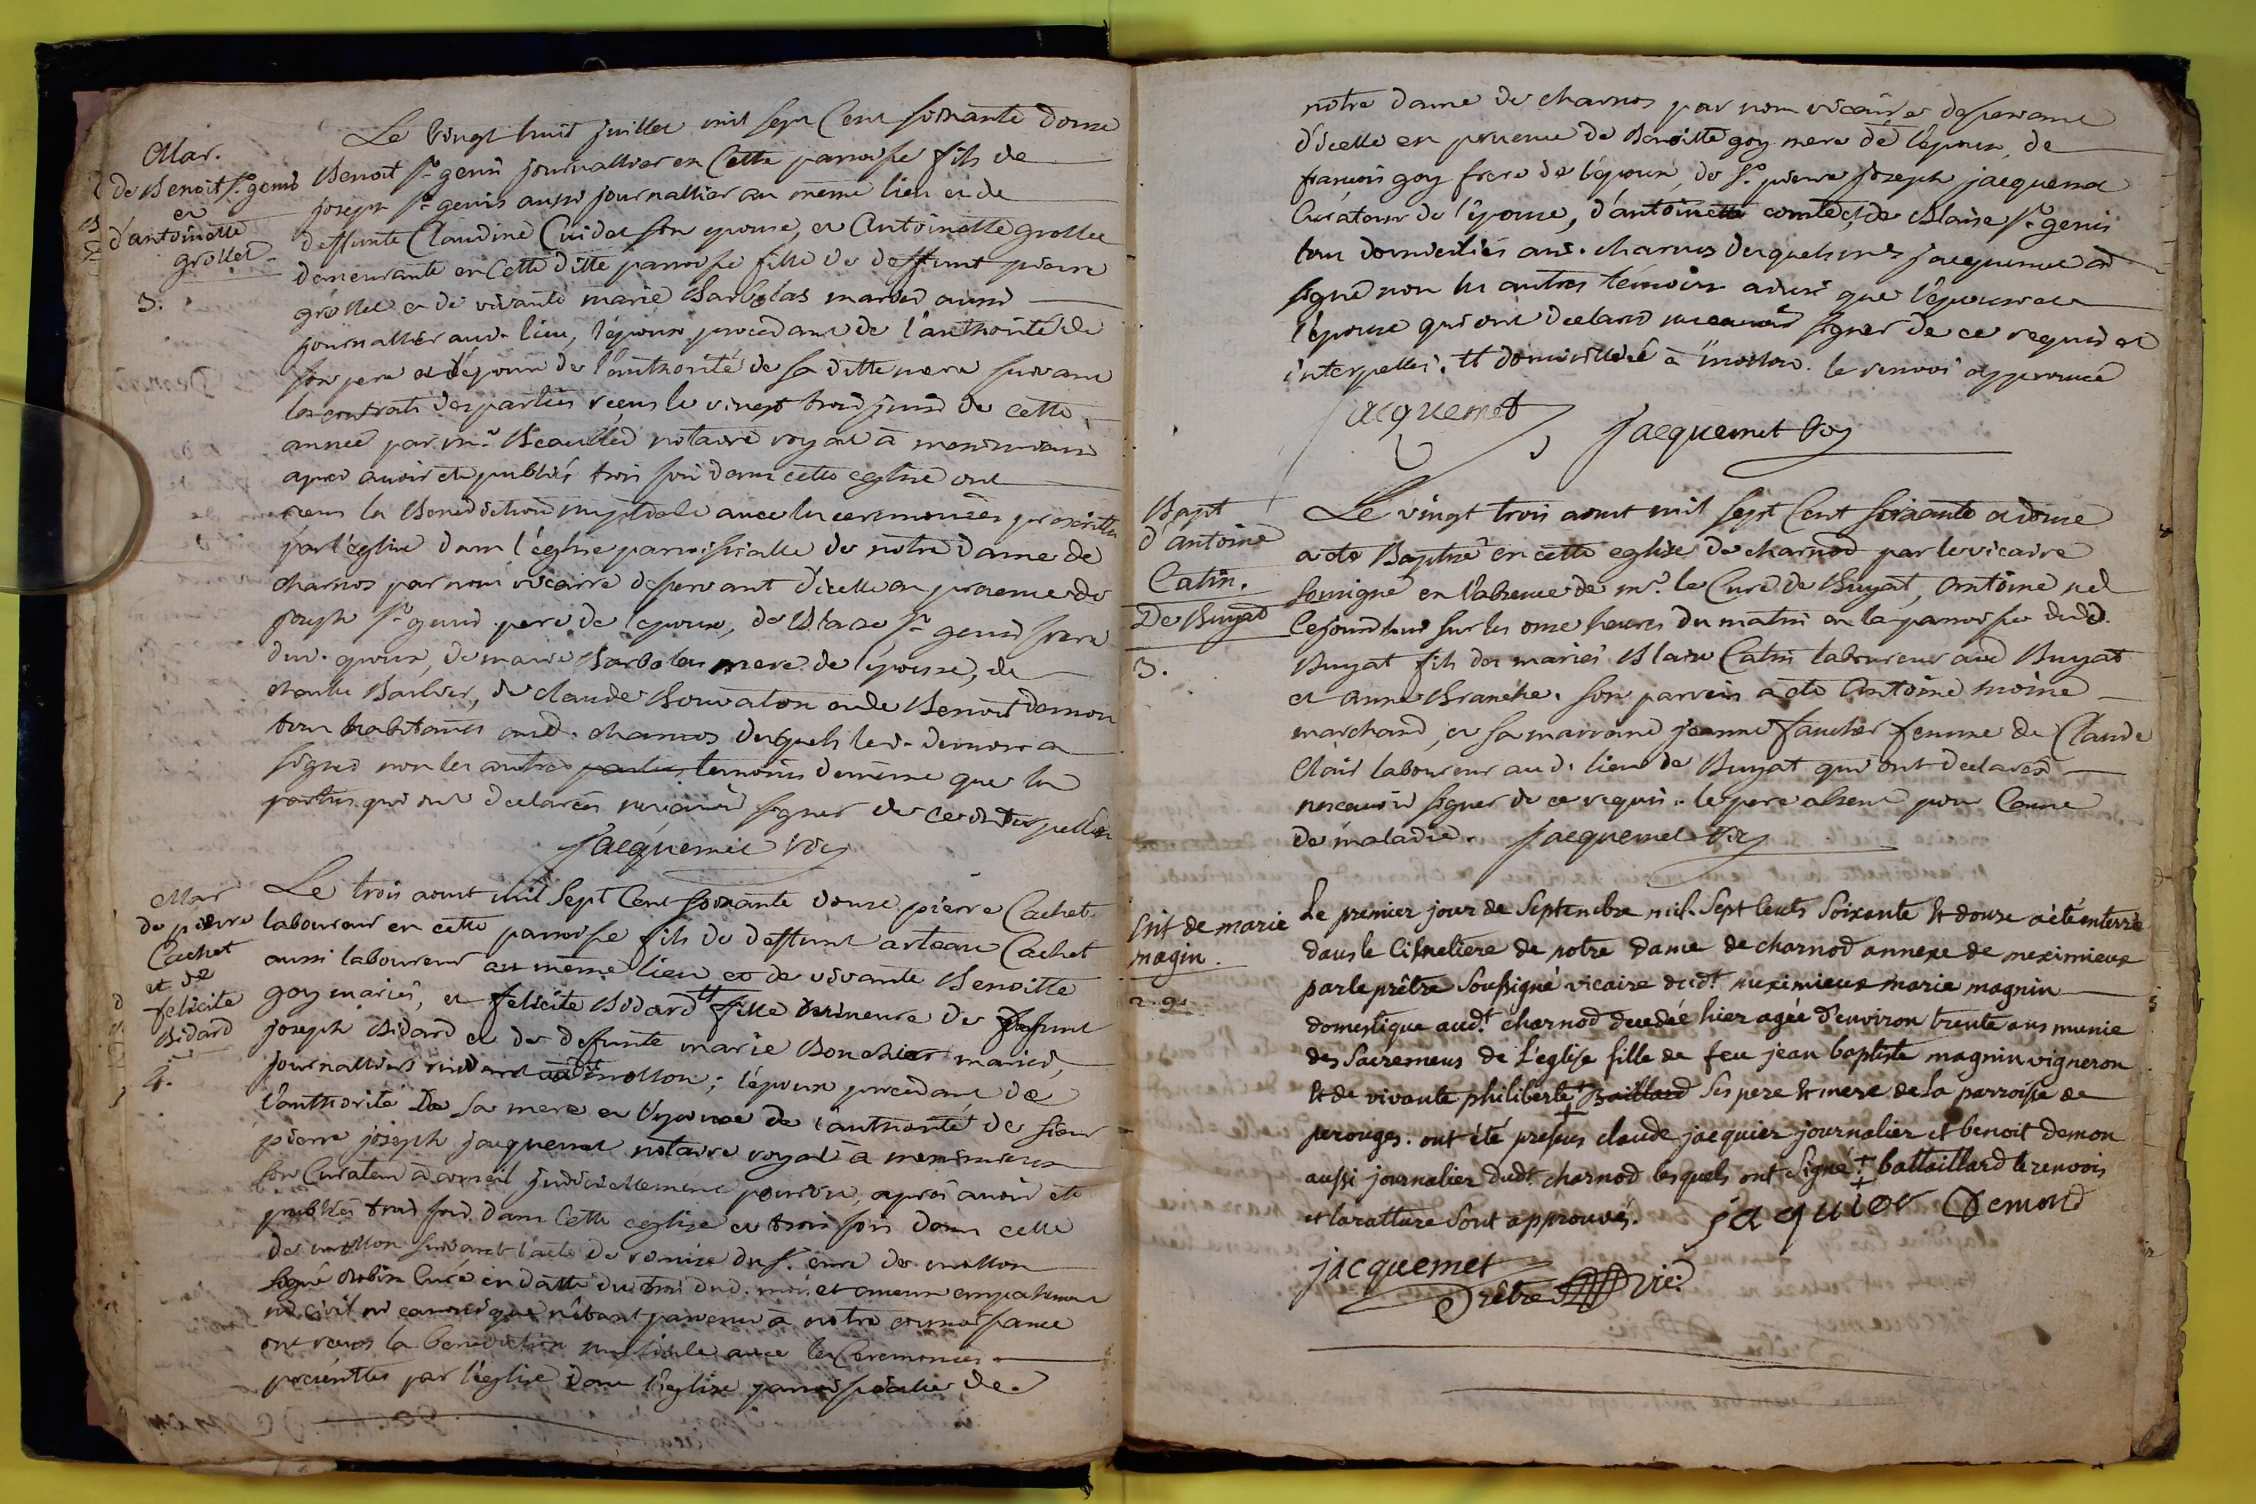 Mar.
de Benoit St genis
et
d'antoinette
grollet
3.
Le vingt huit juillet mil sept Cent soixante douze
Benoit St genis journallier en Cette parroisse fils de
joseph St genis aussi journallier au même lieu et de
deffunte Claudine Cuidet son epouse, et Antoinette grollet
demeurante en Cette ditte parroisse fille de deffunt pierre
grollet et de vivante marie Barbolas mariés aussi
journallier aud. lieu, l'époux procedant de l'authorité de
son pere et l'épouse de l'authorité de sa ditte mere suivant
les contrats des parties reçus le vingt trois juin de cette
année par me notaire royal à meximieux
apres avoir eté publiés trois fois dans cette eglise ont
reçus la Benediction nuptiale avec les ceremonies prescrittes
par l'église dans l'église parroissialle de notre Dame de
charnos par nous vicaire desservant d'icelle en presence de
joseph St genis pere de l'epoux, de Blaise St genis frere
dud. epoux, de marie Barbolas mere de l'épouse, de
Barbier, de claude Bouvaton et de Benoit demon
tous habitants aud. charnos desquels led. demon a
signé non les autres parties temoins de même que les
parties qui ont declarés ne sçavoir signer de ce interpellés
Jacquemet vic
Mar
de pierre
Cachet
et de
felicite
Bidard
4.
Le trois aout mil Sept Cent soixante douze pierre Cachet
laboureur en cette parroisse fils de deffunt anteau Cachet
aussi laboureur au même lieu et de vivante Benoitte
goy mariés, et felicite Bidard tt fille mineure de deffunt
joseph Bidard et de deffunte marie Bouchier mariés,
journalliers mollon; l'époux procedant de
l'authorité De sa mere et l'epouse de l'authorité de sieur
pierre joseph jacquemet notaire royal à meximieux
son Curateur à conseil judiciellement pourvu, après avoir eté
publiés trois fois dans Cette eglise et trois fois dans celle
de mollon suivant l'acte de remise du sr curé de mollon
signé Robin Curé en datte du trois dud. mois et aucun empechement
ni civil ni canonique n'étant parvenu à notre connoissance
ont reçus la benediction nuptiale avec les Ceremonies
prescrittes par l'église dans l'église parroissialle de
notre dame de charnos par nous vicaire desservant
d'icelle en presence de Benoitte goy mere de l'époux, de
francois goy frere de l'épouse, de Sr pierre joseph jacquemet
Curateur de l'épouse, d'antoinette comte et de Blaise St genis
tous domiciliés aud. charnos desquels me jacquemet a
signé non les autres témoins ainsi que l'époux et
l'épouse qui ont declaré ne sçavoir signer de ce requis et
interpellés. tt domicilliée à mollon. le renvoi approuvé
jacquemet
Jacquemet vic
Bapt
d'antoine
Catin.
De Buyat
3.
Le vingt trois aout mil sept Cent soixante et douze
a eté Baptisé en cette eglise de charnod par le vicaire
soussigné en l'absence de mr. le Curé de Buyat, Antoine né
Cejourdhui sur les onze heures du matin en la parroisse dud.
Buyat fils des mariés Blaise Catin laboureur aud Buyat
et anne Branche. son parrein a eté Antoine moine
marchand, et sa marrainne jeanne faucher femme de Claude
Clair laboureur aud. lieu de Buyat qui ont declarés
ne sçavoir signer de ce requis. le pere absent pour Cause
de maladie. Jacquemet vic
Ent de marie
magin.
2. 9s
Le premier jour de Septembre mil. Sept Cents Soixante & douze a été enterrée
dans le Cimetiere de notre dame de charnod annexe de meximieux
par le prêtre Soussigné vicaire dudt meximieux marie magnin
domestique audt charnod decedée hier agée d'environ trente ans munie
des Sacremens de L'eglise fille de feu jean baptiste magnin vigneron
& de vivante philiberte + Baillard Ses pere & mere de la parroisse de
perouges. ont été presens claude jacquier journalier et benoit demon
aussi journalier dudt charnod lesquels ont Signé. ‡ battaillard le renvois
et la ratture Sont approuvés. jaquier Demond
jacquemet
Prêtre vic.